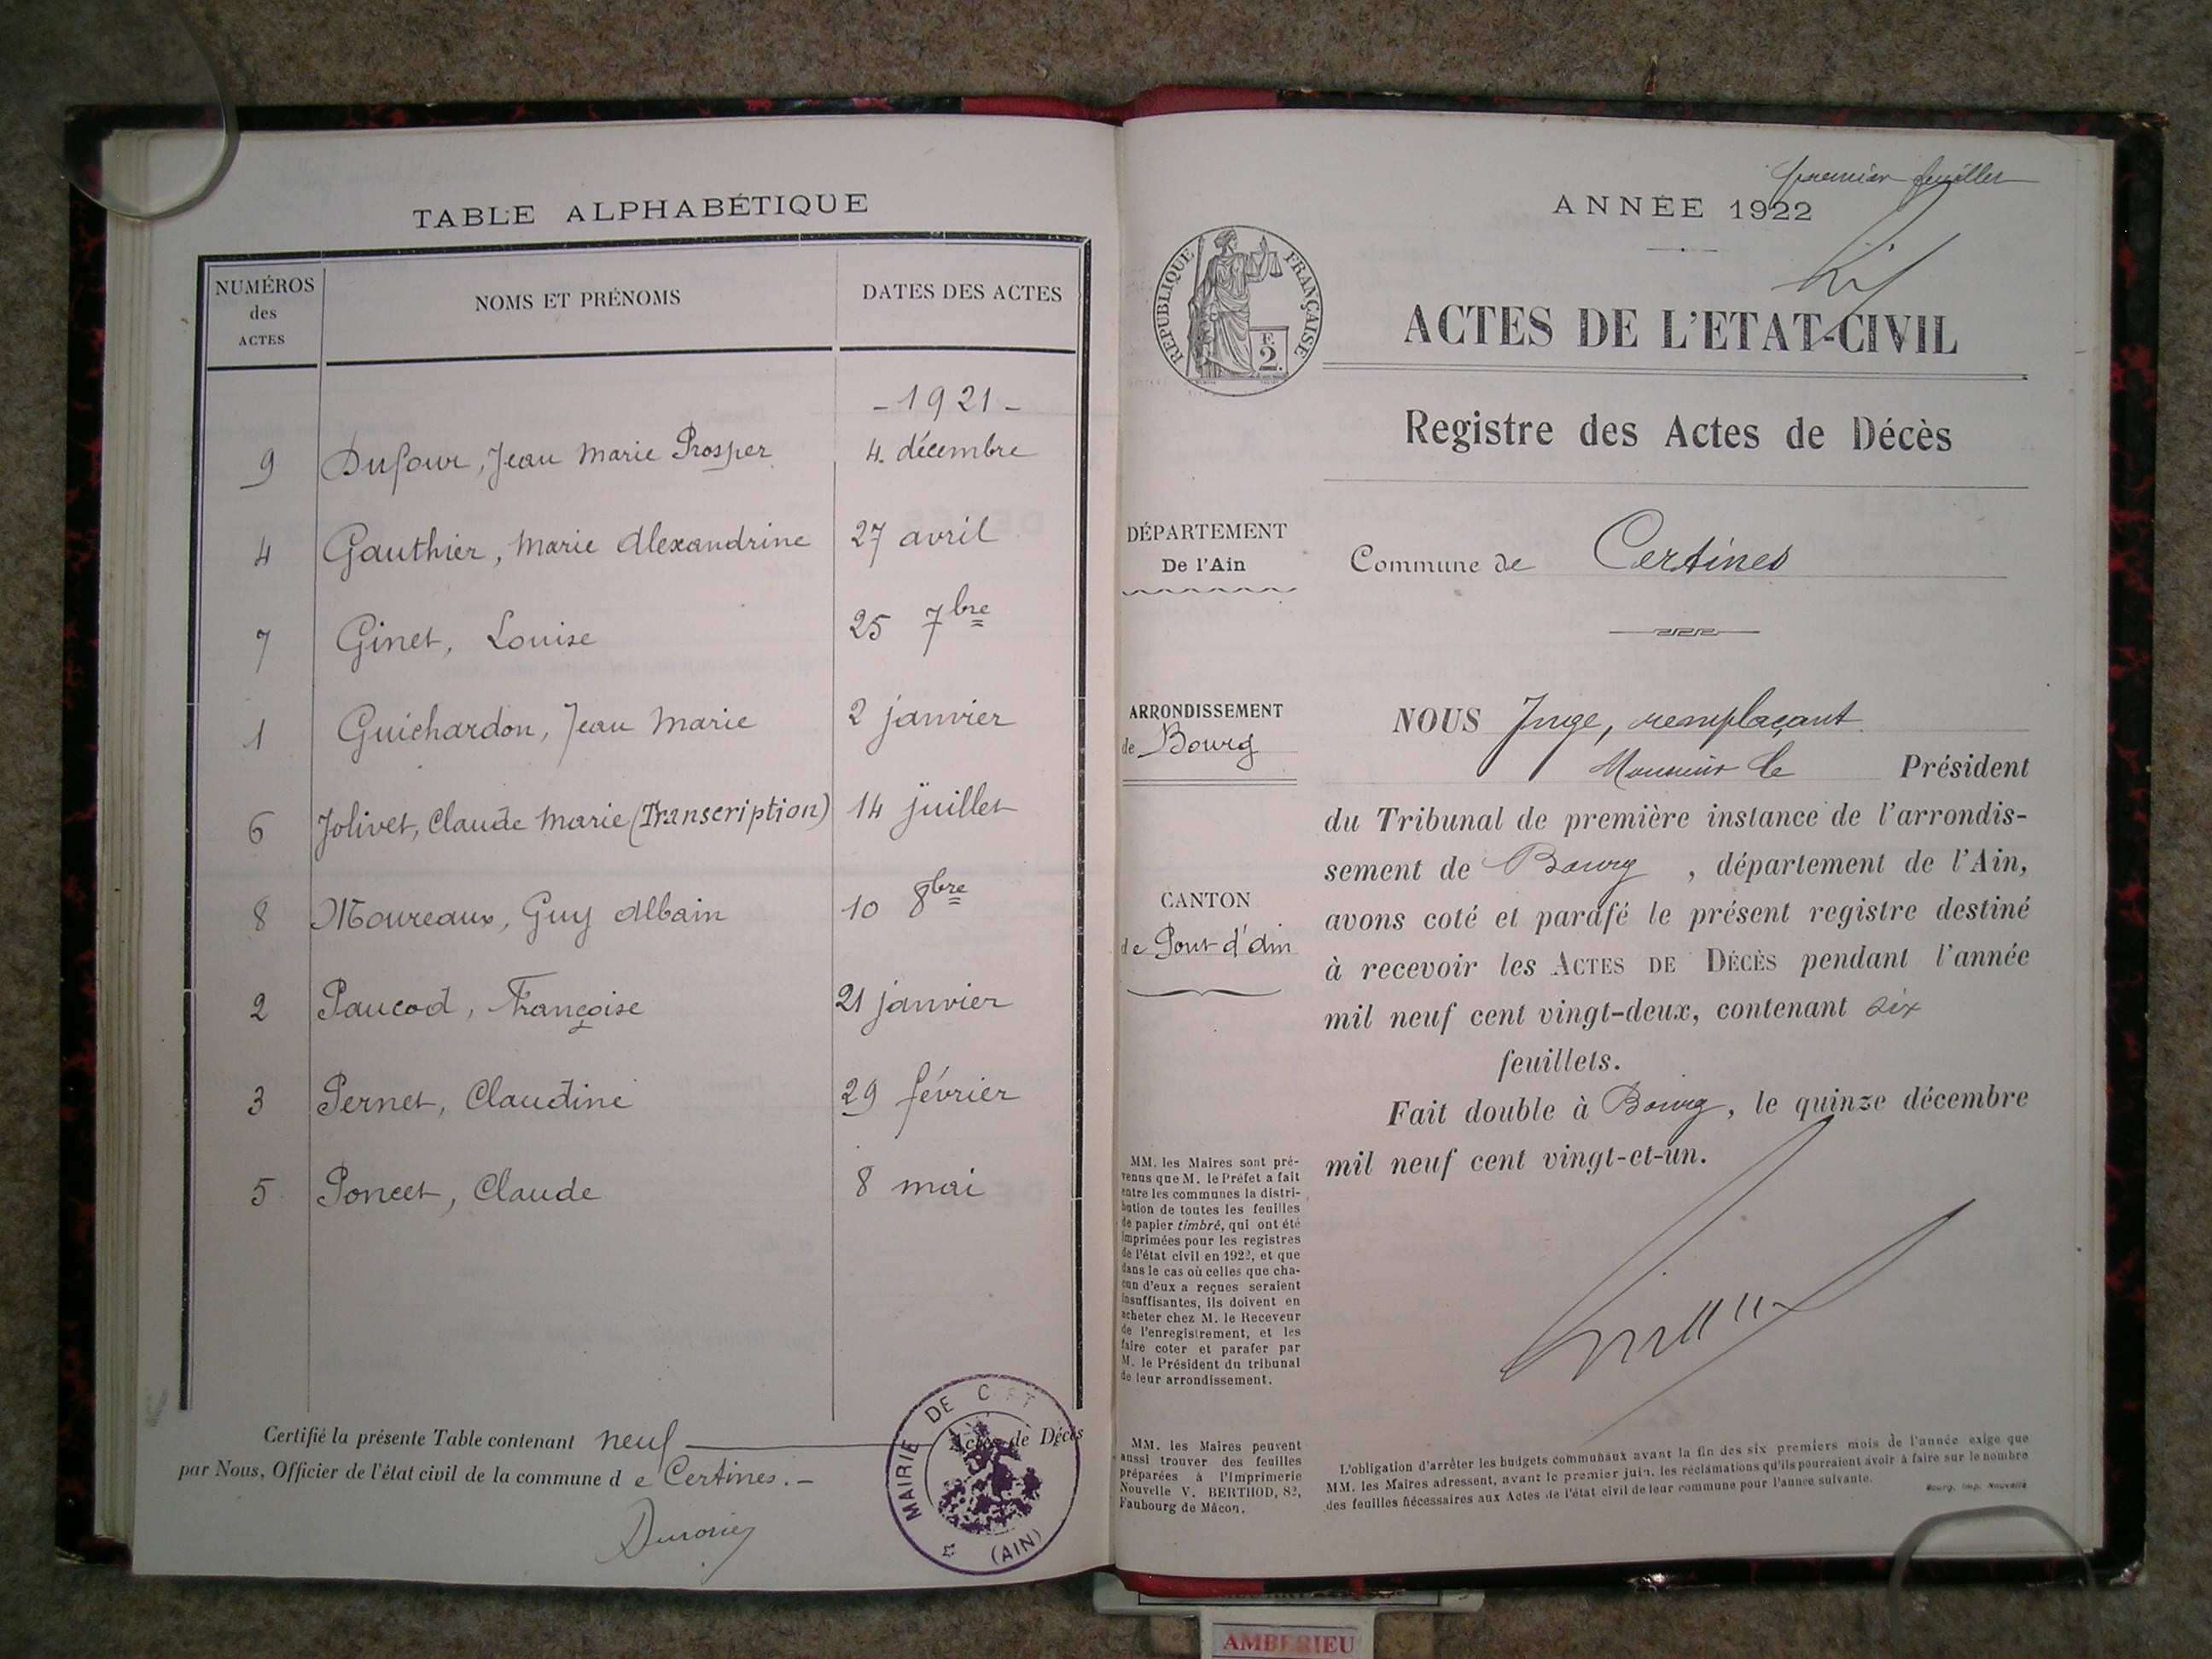 TABLE ALPHABÉTIQUE
NUMÉROS des ACTES
NOMS ET PRÉNOMS
DATES DES ACTES
- 1921 -
9 Dufour, Jean Marie Prosper 4 décembre
4 Gauthier, Marie Alexandrine 27 avril
7 Ginet, Louise 25 7bre
1 Guichardon, Jean Marie 2 janvier
6 Jolivet, Claude Marie (Transcription) 14 juillet
8 Moureaux, Guy Albain 10 8bre
2 Paucod, Françoise 21 janvier
3 Pernet, Claudine 29 février
5 Poncet, Claude 8 mai
Certifié la présente Table contenant neuf Actes de Décès
par Nous, Officier de l'état civil de la commune de Certines. -
MAIRIE DE
(AIN)
premier feuillet
ANNÉE 1922
RÉPUBLIQUE FRANÇAISE
F.
2.
ACTES DE L'ETAT-CIVIL
Registre des Actes de Décès
DÉPARTEMENT
De l'Ain
Commune de Certines
ARRONDISSEMENT
de Bourg
CANTON
de Pont d'Ain
NOUS Juge, remplaçant
Monsieur le Président
du Tribunal de première instance de l'arrondis-
sement de Bourg, département de l'Ain,
avons coté et parafé le présent registre destiné
à recevoir les ACTES DE DÉCÈS pendant l'année
mil neuf cent vingt-deux, contenant six
feuillets.
Fait double à Bourg, le quinze décembre
mil neuf cent vingt-et-un.
MM. les Maires sont pré-
venus que M. le Préfet a fait
entre les communes la distri-
bution de toutes les feuilles
de papier timbré, qui ont été
imprimées pour les registres
de l'état civil en 1922, et que
dans le cas où celles que cha-
cun d'eux a reçues seraient
insuffisantes, ils doivent en
acheter chez M. le Receveur
de l'enregistrement, et les
faire coter et parafer par
M. le Président du tribunal
de leur arrondissement.
MM. les Maires peuvent
aussi trouver des feuilles
préparées à l'Imprimerie
Nouvelle V. BERTHOD, 82,
Faubourg de Mâcon.
L'obligation d'arrêter les budgets communaux avant la fin des six premiers mois de l'année exige que
MM. les Maires adressent, avant le premier juin, les réclamations qu'ils pourraient avoir à faire sur le nombre
des feuilles nécessaires aux Actes de l'état civil de leur commune pour l'année suivante.
Bourg, Imp. Nouvelle
AMBERIEU